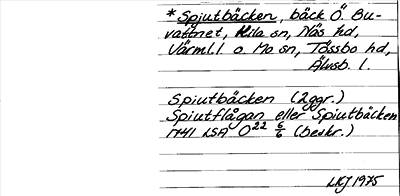 * Spjutbäcken, bäck Ö. Bu-
vattnet, Kila sn, Näs hd,
Värml. l o. Ho sn, Tössbo hd,
Älvsb. l.
Spiutbäcken (2ggr.)
Spiutflågan eller Spiutbäcken
1741 LSA O22 6/6 (beskr.)
LKJ 1975